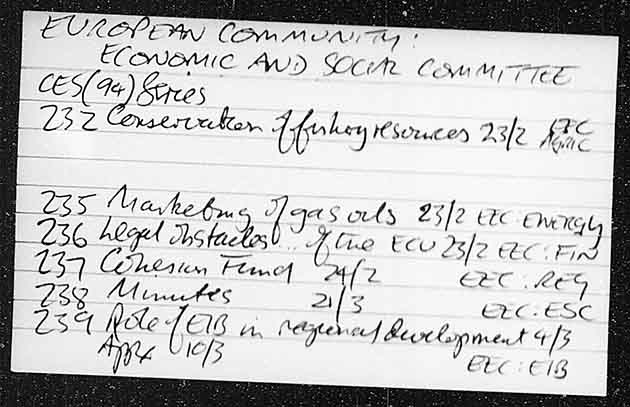 EUROPEAN COMMUNITY:
ECONOMIC AND SOCIAL COMMITTEE
CES(94) Series
232 Conservation of fishery resources 23/2 EEC AGRIC
235 Marketing of gas oils 23/2 EEC: ENERGY
236 Legal obstacles... of the ECU 23/2 EEC: FIN
237 Cohesion Fund 24/2 EEC: REG
238 Minutes 21/3 EEC: ESC
239 Role of EIB in regional development 4/3
Appx 10/3 EEC: EIB